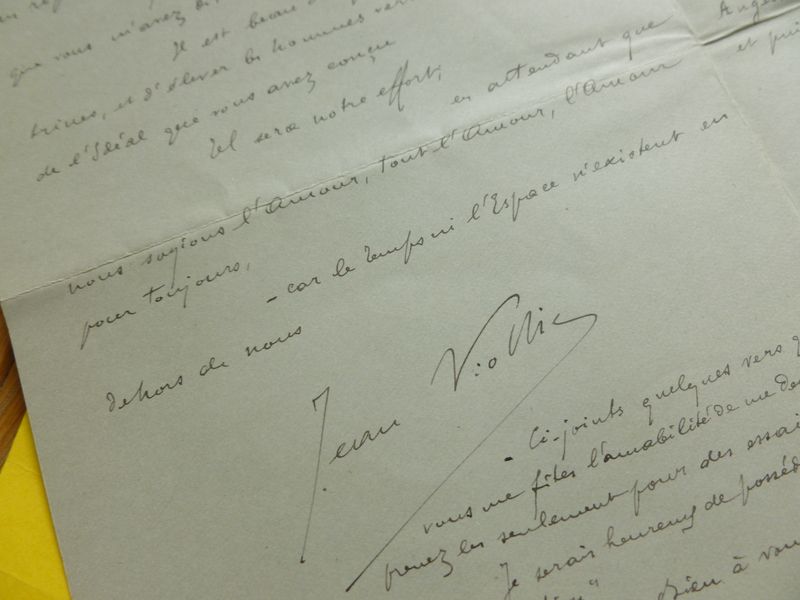 que vous m'avez
Il est beau
trines, et d'élever les hommes vers
de l'Idéal que vous avez conçu
Tel sera notre effort,
en attendant que
nous soyions l'Amour, tout l'Amour, l'Amour
pour toujours,
- car le Temps ni l'Espace n'existent en
dehors de nous
Jean
- Ci-joints quelques vers
vous me fîtes l'amabilité de me
prenez les seulement pour des essais
Je serais heureux de posséd
bien à vou
et pui